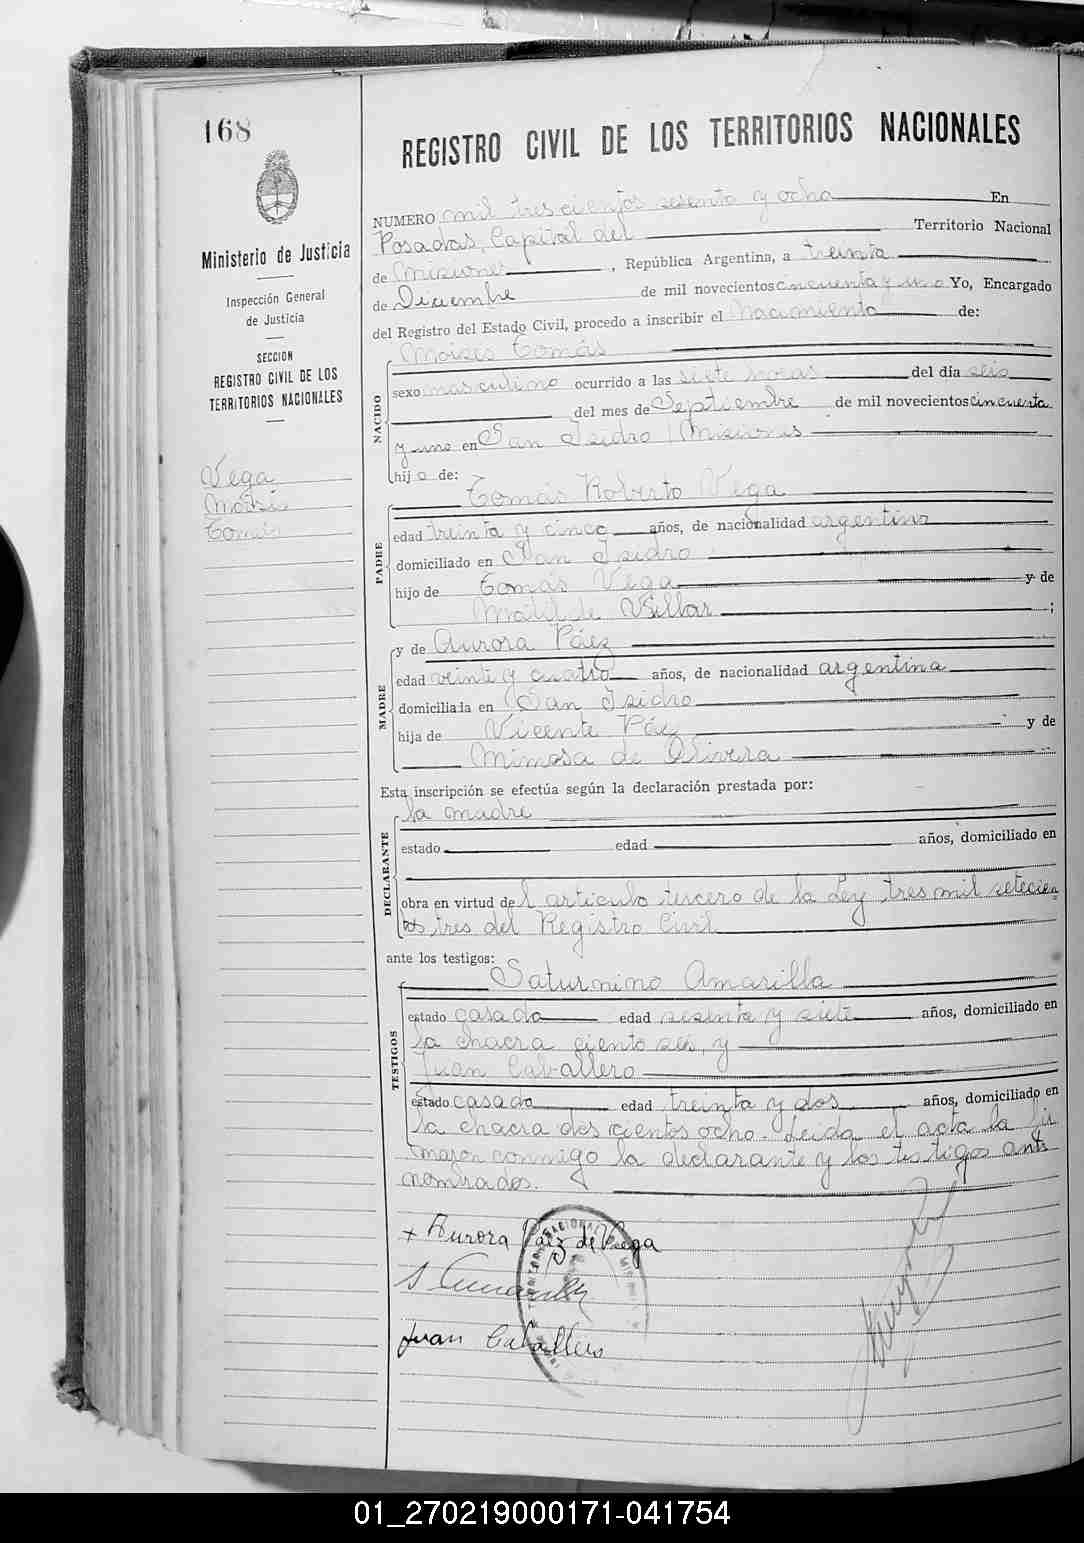 168
REGISTRO CIVIL DE LOS TERRITORIOS NACIONALES
Ministerio de Justicia
Inspección General
de Justicia
SECCION
REGISTRO CIVIL DE LOS
TERRITORIOS NACIONALES
Vega
Moisés
Tomás
NUMERO mil trescientos sesenta y ocho En
Posadas, Capital del Territorio Nacional
de Misiones, República Argentina, a treinta
de Diciembre de mil novecientos cincuenta y uno Yo, Encargado
del Registro del Estado Civil, procedo a inscribir el Nacimiento de:
NACIDO
Moises Tomás
sexo masculino ocurrido a las siete horas del día seis
del mes de Septiembre de mil novecientos cincuenta
y uno en San Isidro, Misiones
hijo de:
PADRE
Tomás Roberto Vega
edad treinta y cinco años, de nacionalidad argentino
domiciliado en San Isidro
hijo de Tomás Vega y de
Matilde Villar ;
MADRE
y de Aurora Páez
edad veinte y cuatro años, de nacionalidad argentina
domiciliada en San Isidro
hija de Vicente Páez y de
Mimosa de Olivera
Esta inscripción se efectúa según la declaración prestada por:
DECLARANTE
la madre
estado edad años, domiciliado en
obra en virtud del artículo tercero de la Ley tres mil setecien
tos tres del Registro Civil
ante los testigos:
TESTIGOS
Saturnino Amarilla
estado casado edad sesenta y siete años, domiciliado en
la chacra ciento seis, y
Juan Caballero
estado casado edad treinta y dos años, domiciliado en
la chacra doscientos ocho. Leida el acta la fir
maron conmigo la declarante y los testigos ante
nombrados.
+ Aurora Páez de Vega
S Amarilla
Juan Caballero
01_270219000171-041754